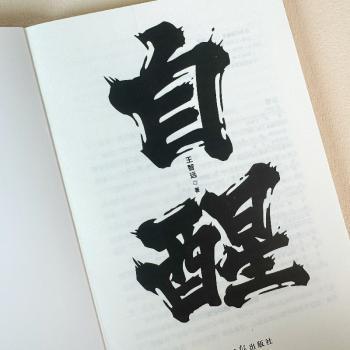 自
醒
王智远◎著
出版社